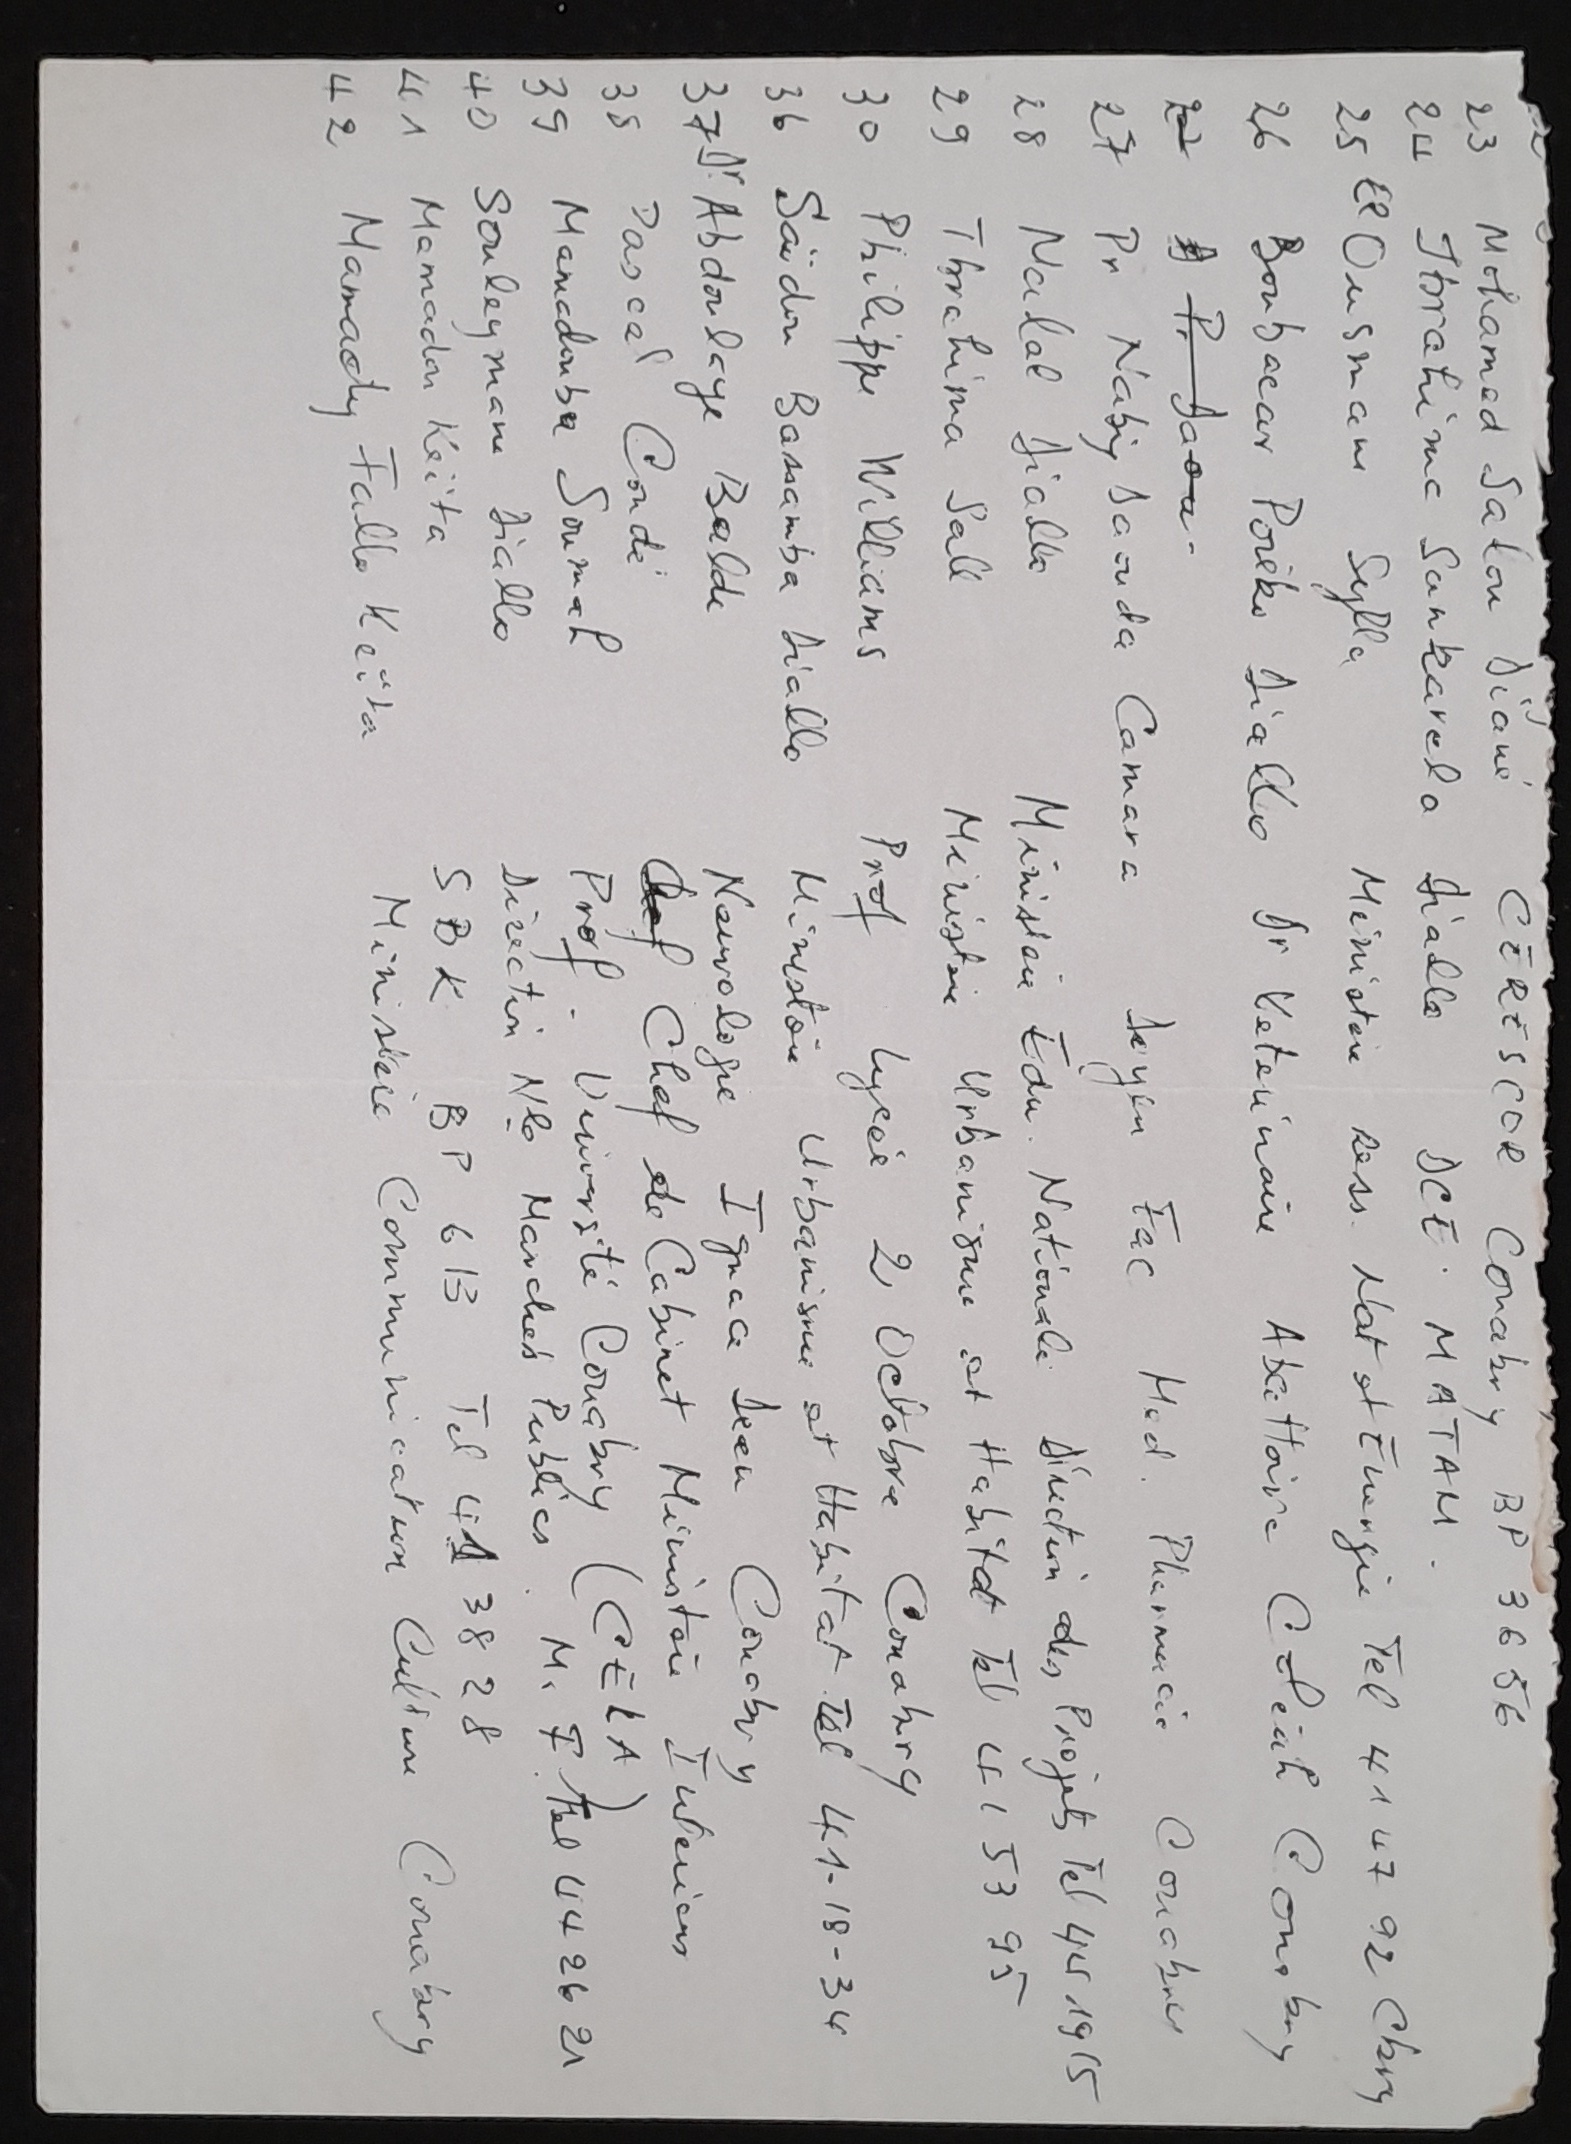 23 Mohamed Salou Diané CERESCOR Conakry BP 3656
24 Ibrahima Sankarela Diallo DCE. MATAM.
25 El Ousmane Sylla Ministère Ress. Nat et Energie Tel 41 47 92 Ckry
26 Boubacar Poréko Diallo Dr Veterinaire Abattoire Coleah Conakry
27 Pr Daou
27 Pr Naby Daouda Camara Doyen Fac Med. Pharmacie Conakry
28 Nalal Diallo Ministère Edu. Nationale Direction des Projets Tel 44 19 15
29 Ibrahima Sall Ministère Urbanisme et Habitat Tel 41 53 95
30 Philippe Williams Prof Lycée 2 Octobre Conakry
36 Saïdou Bassamba Diallo Ministère Urbanisme et Habitat Tel 41-18-34
37 Dr Abdoulaye Balde Neurologie Ignace Deen Conakry
38 Pascal Condé Chef de Cabinet Ministère Interieur
39 Mamadouba Soumah Prof. Université Conakry (CERA)
40 Souleymane Diallo Direction Nle Marches Publics. M. F. Tel 44 26 21
41 Mamadou Keïta SBK BP 613 Tel 41 38 28
42 Mamady Fallo Keïta Ministère Communication Culture Conakry